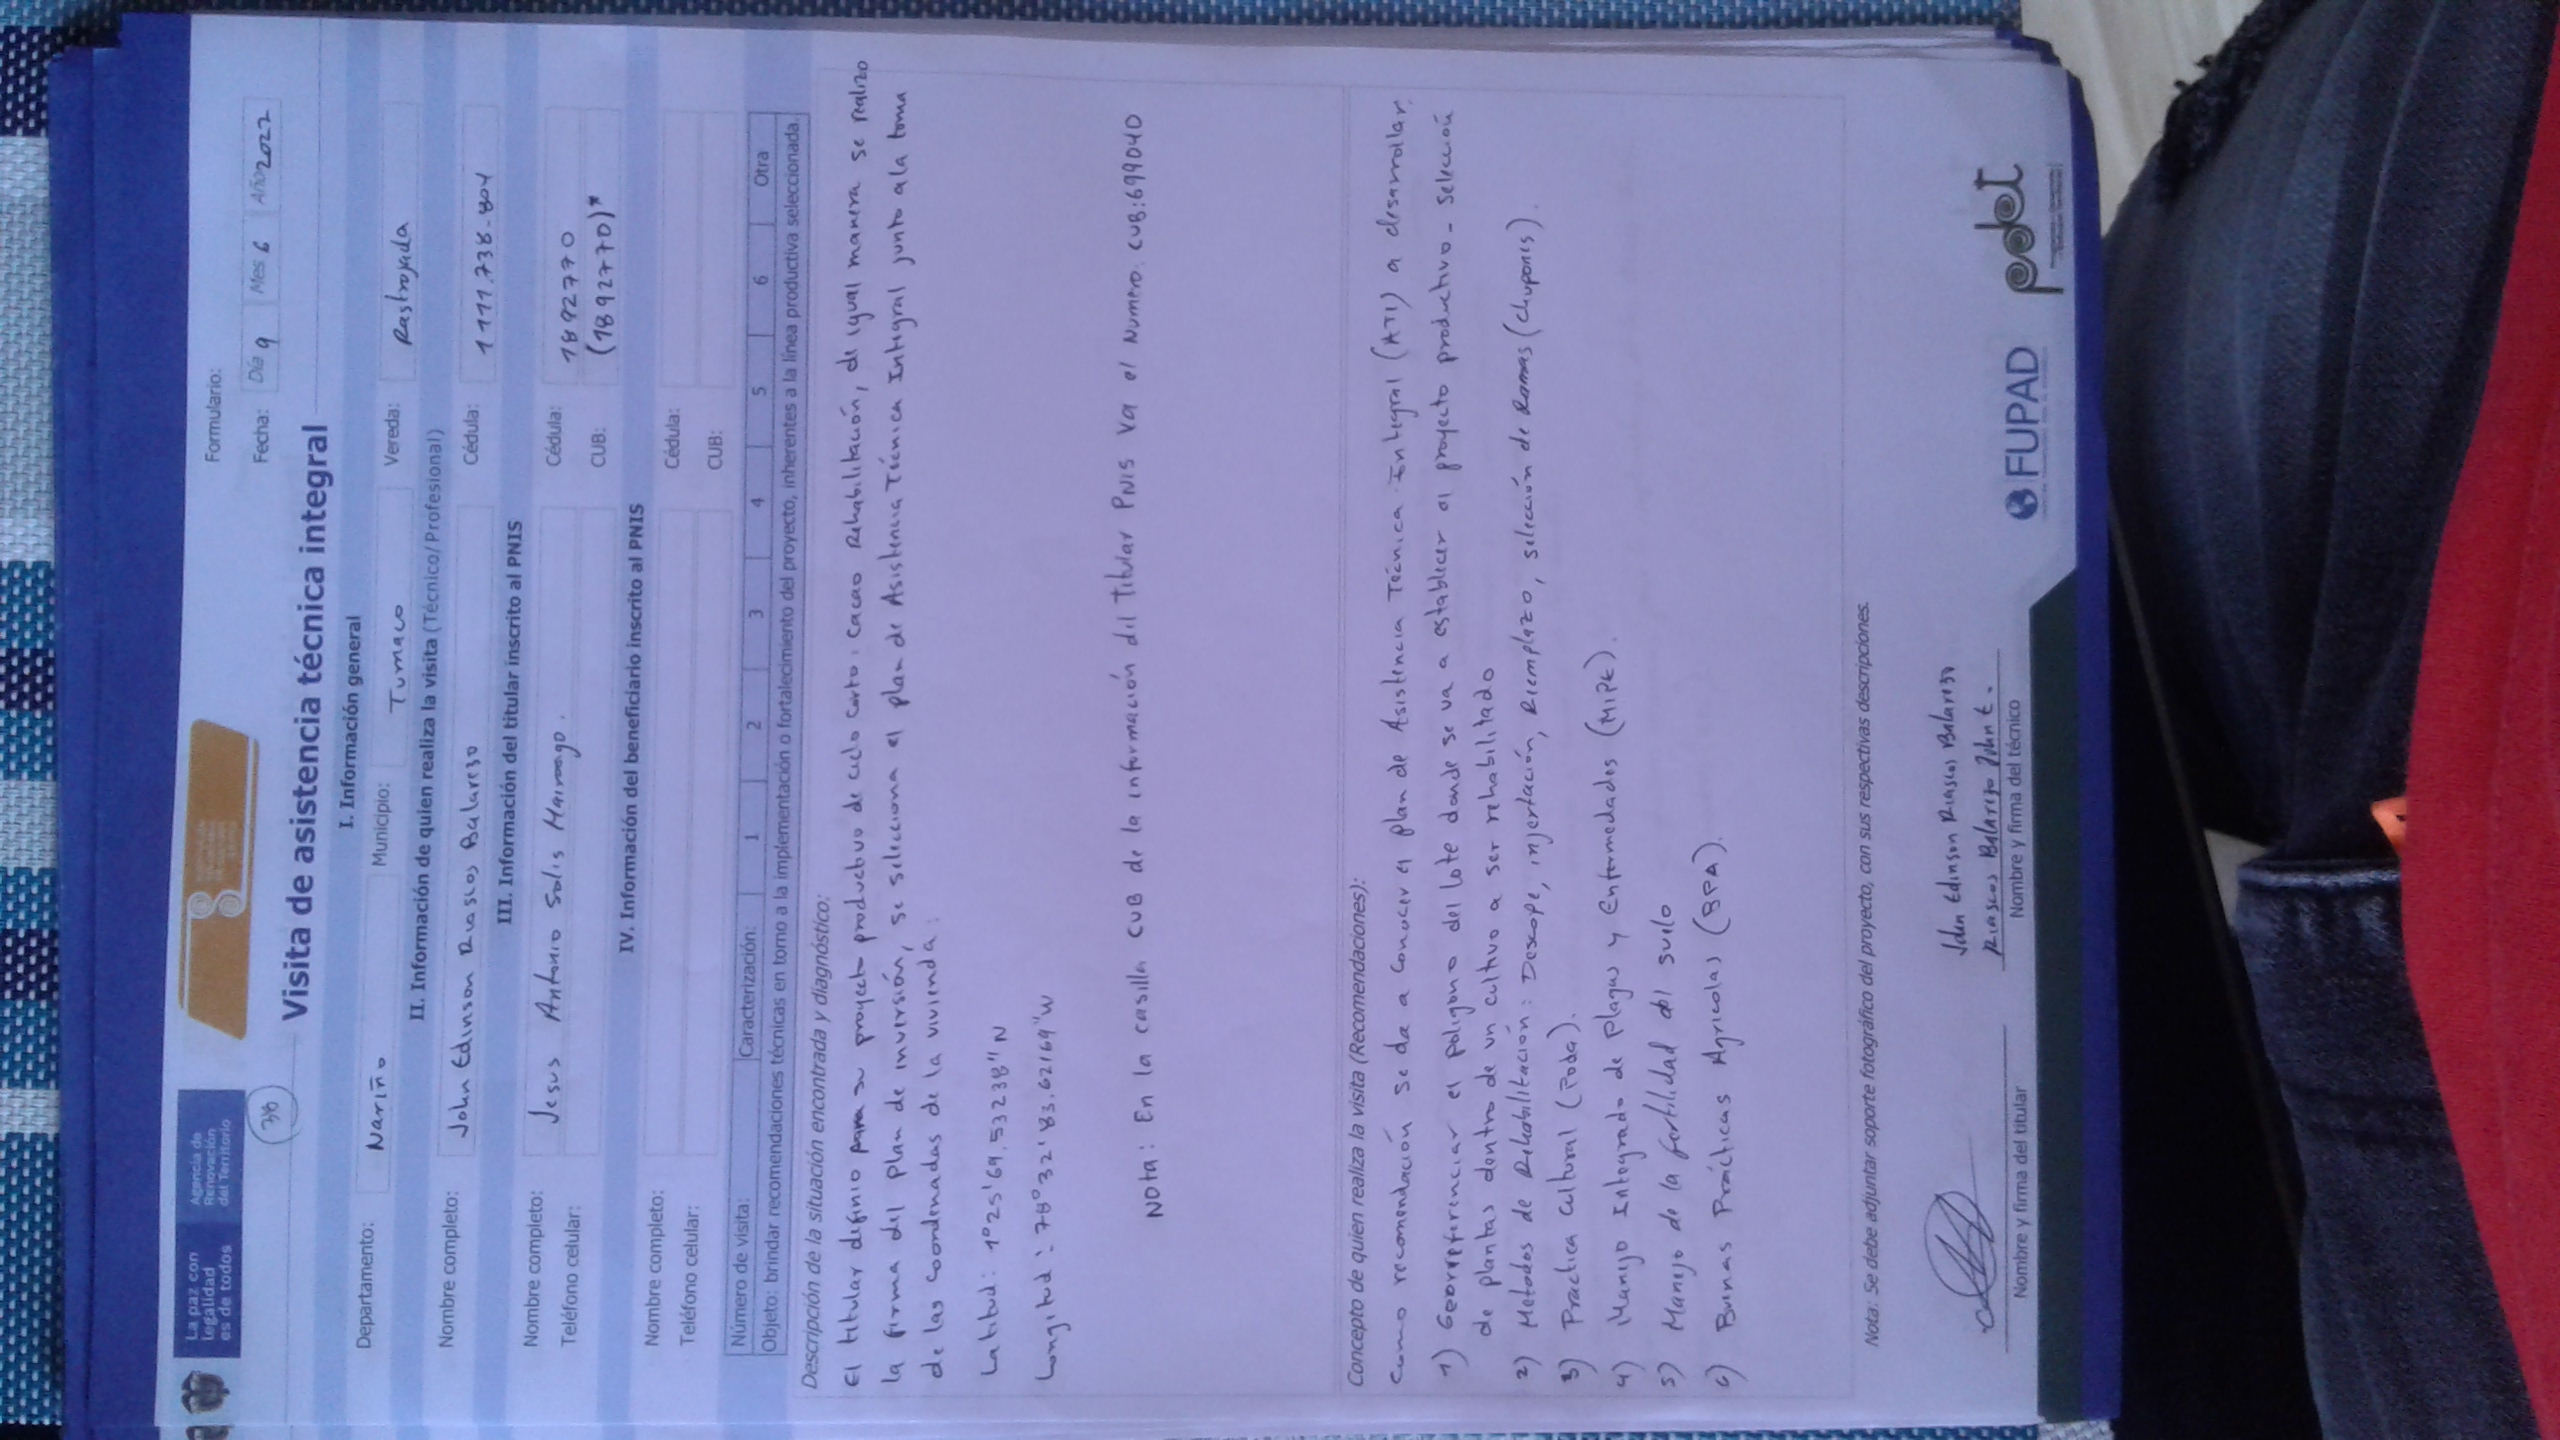 La paz con
legalidad
es de todos
Agencia de
Renovación
del Territorio
Formulario:
Fecha: Día 9 Mes 6 Año 2022
Visita de asistencia técnica integral
I. Información general
Departamento: Nariño Municipio: Tumaco Vereda: Rastrojada
II. Información de quien realiza la visita (Técnico/Profesional)
Nombre completo: John Edinson Riascos Balarezo Cédula: 1111.738.804
III. Información del titular inscrito al PNIS
Nombre completo: Jesus Antonio Solis Cédula: 1892770
Teléfono celular: CUB: (1892770)*
IV. Información del beneficiario inscrito al PNIS
Nombre completo: Cédula:
Teléfono celular: CUB:
Número de visita: Caracterización: 1 2 3 4 5 6 Otra
Objeto: brindar recomendaciones técnicas en torno a la implementación o fortalecimiento del proyecto, inherentes a la línea productiva seleccionada.
Descripción de la situación encontrada y diagnóstico:
El titular definio para su proyecto productivo de ciclo corto: cacao Rehabilitación, de igual manera se realizo
la firma del plan de inversión, se selecciona el plan de Asistencia Técnica Integral junto ala toma
de las coordenadas de la vivienda:
Latitud: 1°25'69.53238"N
Longitud: 78°32'83.62169"W
Nota: En la casilla CUB de la información del Titular PNIS va el Numero. CUB:699040
Concepto de quien realiza la visita (Recomendaciones):
Como recomendación se da a conocer el plan de Asistencia Técnica Integral (ATI) a desarrollar.
1) Georreferenciar el poligono del lote donde se va a establecer el proyecto productivo - selección
de plantas dentro de un cultivo a ser rehabilitado
2) Metodos de Rehabilitación: Descope, injertación, Reemplazo, selección de Ramas (chupones).
3) Practica cultural (Poda).
4) Manejo Integrado de plagas y Enfermedades (MIPE).
5) Manejo de la fertilidad del suelo
6) Buenas Prácticas Agricolas (BPA).
Nota: Se debe adjuntar soporte fotográfico del proyecto, con sus respectivas descripciones.
John Edinson Riascos Balarezo
Riascos Balarezo John E.
Nombre y firma del titular
Nombre y firma del técnico
FUPAD
pdet